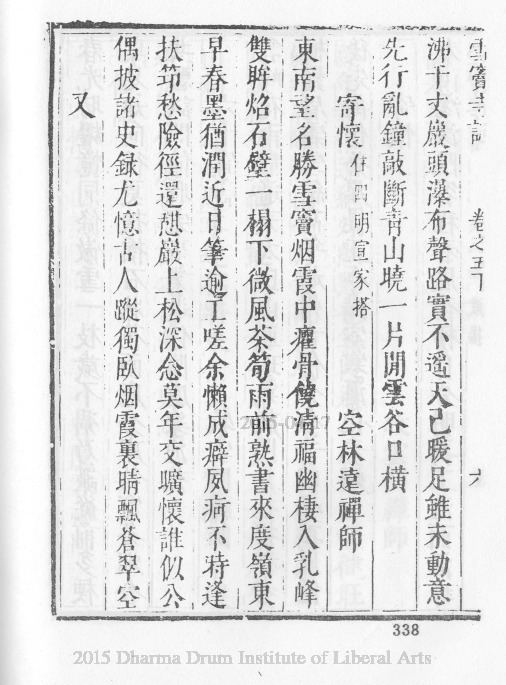 雪竇寺誌 卷之五下 六
沸千丈巖頭瀑布聲路實不遥天已暖足雖未動意
先行亂鐘敲斷青山曉一片閒雲谷口橫
寄懷 住四明宣家搭 空林遠禪師
東南望名勝雪竇烟霞中癯骨饒清福幽棲入乳峰
雙眸焰石壁一榻下微風茶筍雨前熟書來度嶺東
早春墨猶潤近日筆逾工嗟余懶成癖夙疴不時逢
扶笻愁險徑還愁巖上松深念莫年交曠懷誰似公
偶披諸史録尤憶古人蹤獨臥烟霞裏晴飄蒼翠空
又
338
2015 Dharma Drum Institute of Liberal Arts